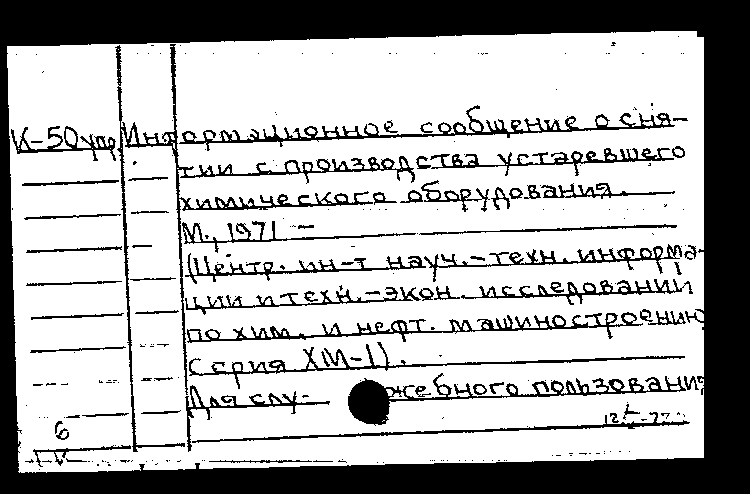 К-50 упр. Информационное сообщение о сня-
тии с производства устаревшего
химического оборудования.
М., 1971 —
(Центр. ин-т науч.-техн. информа-
ции и техн.-экон. исследований
по хим. и нефт. машиностроению
Серия ХМ-1).
Для слу- жебного пользования
6